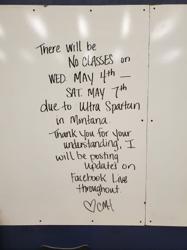 There will be
NO CLASSES on
WED. MAY 4th —
SAT. MAY 7th
due to Ultra Spartan
in Montana.
Thank you for your
understanding, I
will be posting
updates on
Facebook Live
throughout.
♡CMH